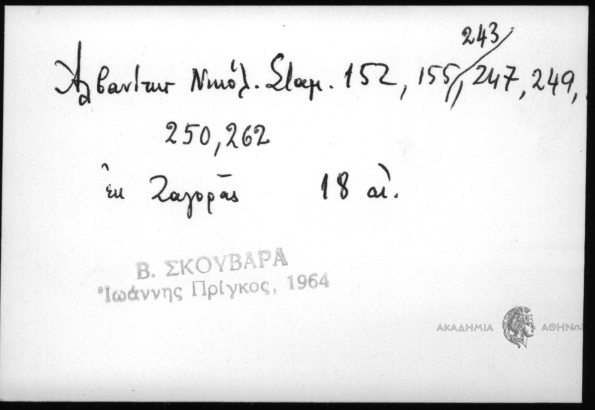 243
Ἀλβανίτης Νικόλ. Σταμ. 152, 155, 247, 249,
250, 262
ἐκ Ζαγορᾶς 18 αἰ.
Β. ΣΚΟΥΒΑΡΑ
Ἰωάννης Πρίγκος, 1964
ΑΚΑΔΗΜΙΑ ΑΘΗΝΩΝ